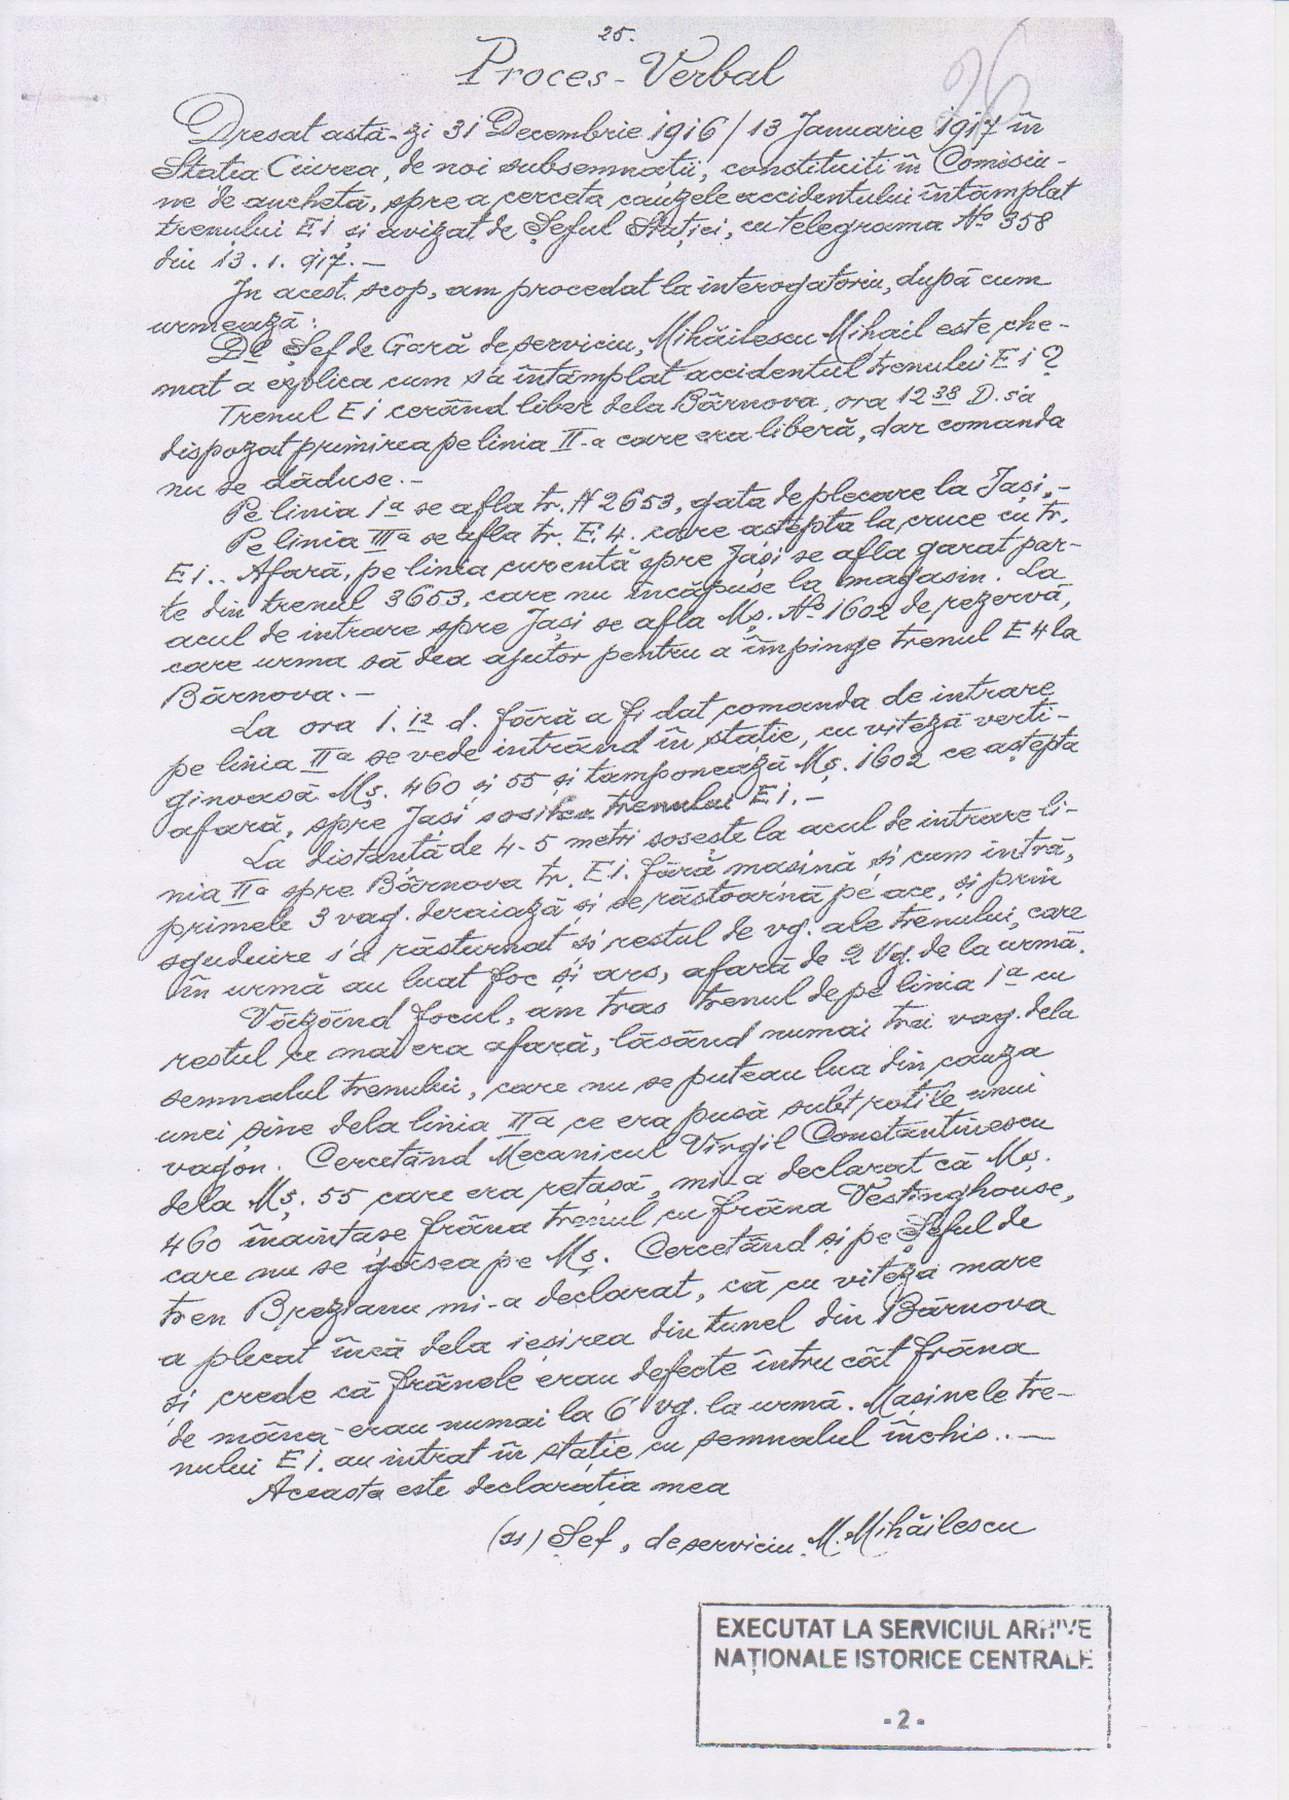 25.
26
Proces-Verbal
Dresat astă-zi 31 Decembrie 1916/13 Januarie 1917 în
Statia Ciurea, de noi subsemnații, constituiti în Comisiu-
ne de anchetă, spre a cerceta cauzele accidentului întâmplat
trenului E1 și avizat de Șeful Stației, cu telegrama No 358
din 13.1.917.—
In acest scop, am procedat la interogatoriu, după cum
urmează:
Dl Șef de Gară de serviciu, Mihăilescu Mihail este che-
mat a explica cum s'a întâmplat accidentul trenului E1?
Trenul E1 cerând liber dela Bârnova, ora 12 38 D. s'a
dispozat primirea pe linia II-a care era liberă, dar comanda
nu se dăduse.—
Pe linia 1a se afla tr. N 2653, gata de plecare la Jași,—
Pe linia IIIa se afla tr. E.4. care aștepta la cruce cu tr.
E1.. Afară, pe linia curentă spre Jași se afla garat par-
te din trenul 3653, care nu încăpuse la magasin. La
acul de intrare spre Jași se afla Mș. No 1602 de rezervă,
care urma să dea ajutor pentru a împinge trenul E4 la
Bârnova.—
La ora 1.12 d. fără a fi dat comanda de intrare
pe linia IIa se vede intrând în stație, cu viteză verti-
ginoasă Mș. 460 și 55 și tamponează Mș. 1602 ce aștepta
afară, spre Jași sosirea trenului E1.—
La distanță de 4-5 metri sosește la acul de intrare li-
nia IIa spre Bârnova tr. E1. fără mașină și cum intră,
primele 3 vag. deraiază și se răstoarnă pe ace, și prin
sguduire s'a răsturnat și restul de vg. ale trenului, care
în urmă au luat foc și ars, afară de 2 Vg. de la urmă.
Văzând focul, am tras trenul de pe linia 1a cu
restul ce mai era afară, lăsând numai trei vag. dela
semnalul trenului, care nu se puteau lua din cauza
unei șine dela linia IIa ce era pusă subt rotile unui
vagon. Cercetând Mecanicul Virgil Constantinescu
dela Mș. 55 care era retașă, mi-a declarat că Mș.
460 înaintase frâna trenul cu frâna Vestinghouse,
care nu se găsea pe Mș. Cercetând și pe Șeful de
tren Brezianu mi-a declarat, că cu viteză mare
a plecat încă dela ieșirea din tunel din Bârnova
și crede că frânele erau defecte întru cât frâna
de mâna-erau numai la 6 vg. la urmă. Mașinele tre-
nului E1. au intrat în stație cu semnalul închis..—
Aceasta este declarația mea
(ss) Șef, de serviciu M. Mihăilescu
EXECUTAT LA SERVICIUL ARHIVE
NAȚIONALE ISTORICE CENTRALE
- 2 -